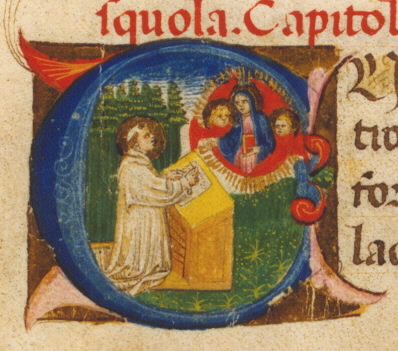 ſquola. Capitol
tio
for
lac